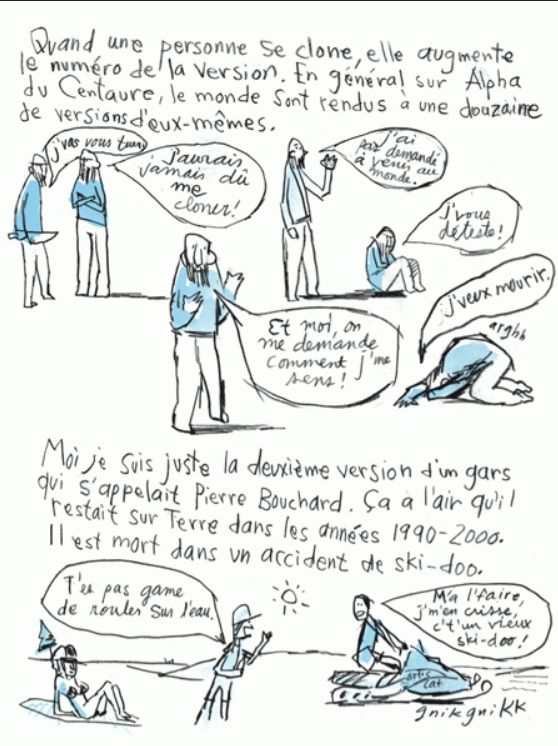 Quand une personne se clone, elle augmente
le numéro de la version. En général sur Alpha
du Centaure, le monde sont rendus à une douzaine
de versions d'eux-mêmes.
j'vas vous tuer,
J'aurais
jamais dû
me
cloner!
J'ai
pas demandé
à venir au
monde.
j'vous
déteste!
j'veux mourir,
arghh
Et moi, on
me demande
comment j'me
sens!
Moi je suis juste la deuxième version d'un gars
qui s'appelait Pierre Bouchard. Ça a l'air qu'il
restait sur Terre dans les années 1990-2000.
Il est mort dans un accident de ski-doo.
T'es pas game
de rouler sur l'eau.
M'a l'faire,
j'm'en crisse,
c't'un vieux
ski-doo!
artic
cat
gnikgnikk